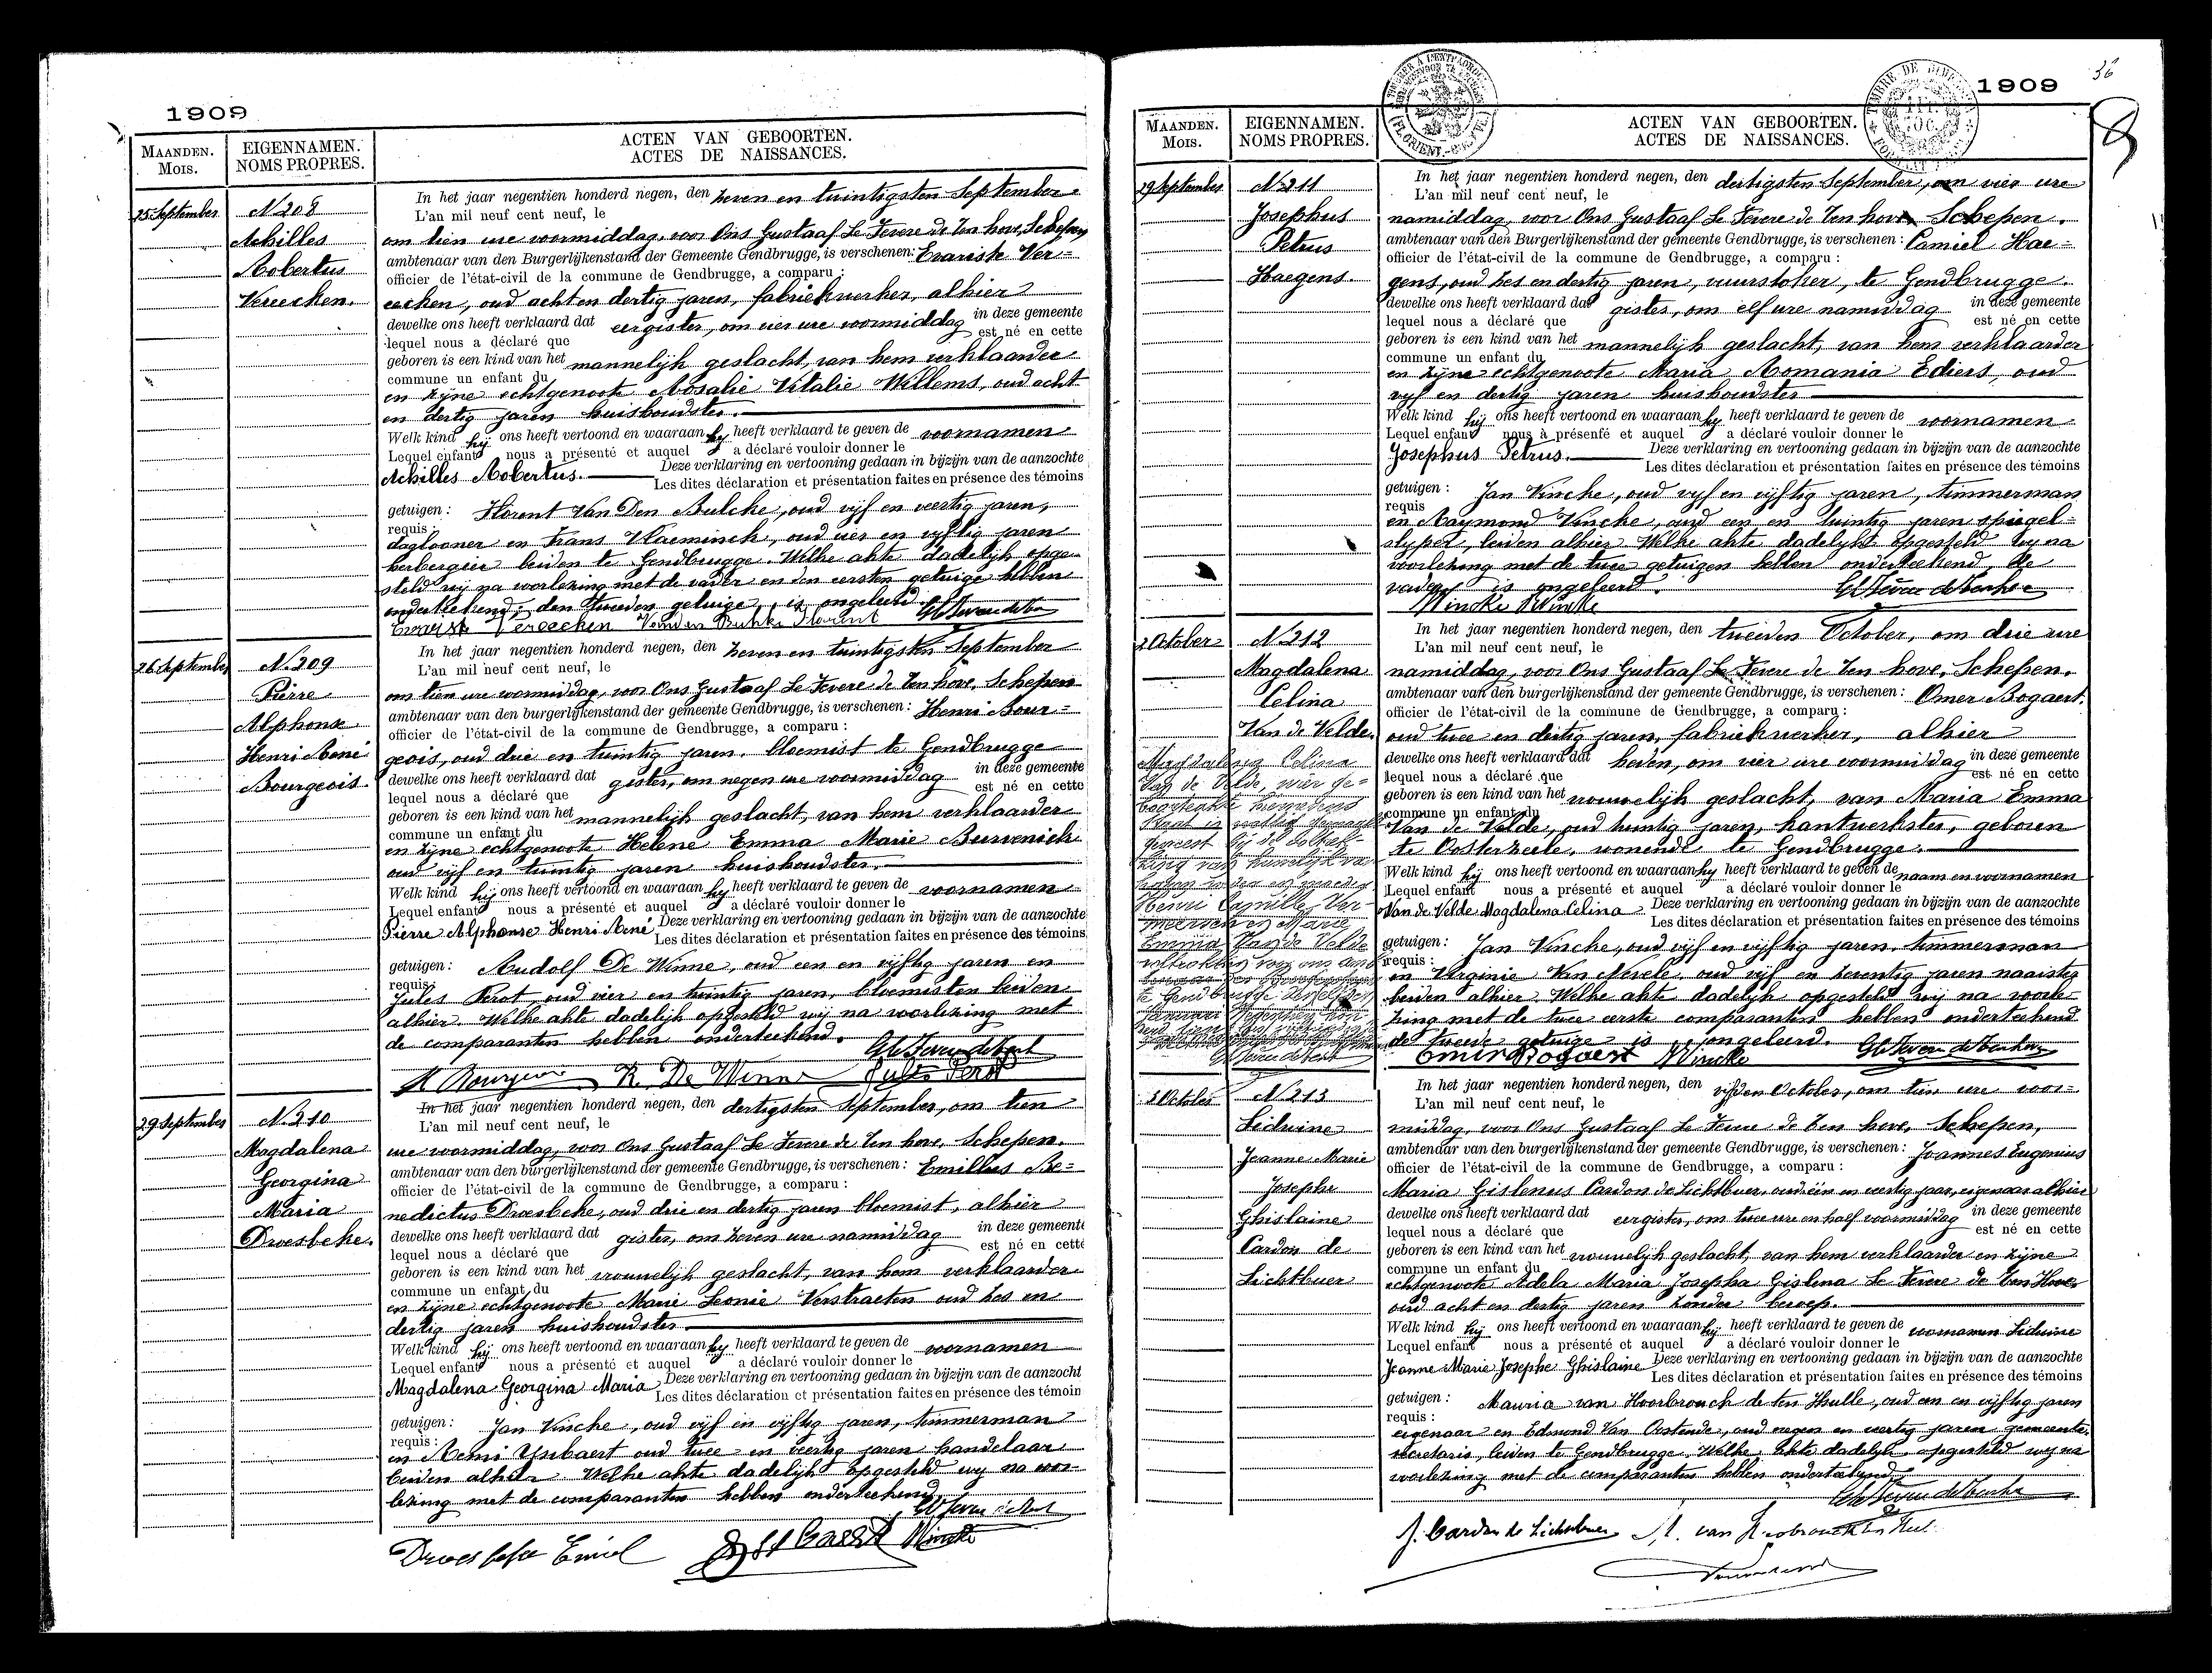 1909
MAANDEN.
MOIS.
EIGENNAMEN.
NOMS PROPRES.
ACTEN VAN GEBOORTEN.
ACTES DE NAISSANCES.
25 September
N. 208
Achilles
Robertus
Vereecken.
In het jaar negentien honderd negen, den zeven en twintigsten September
L'an mil neuf cent neuf, le
om tien ure voormiddag, voor Ons Gustaaf Le Fevere de Ten hove, Schepen
ambtenaar van den Burgerlijkenstand der Gemeente Gendbrugge, is verschenen: Evariste Ver=
officier de l'état-civil de la commune de Gendbrugge, a comparu :
eecken, oud acht en dertig jaren, fabriekwerker, alhier
dewelke ons heeft verklaard dat eergister, om vier ure voormiddag in deze gemeente
lequel nous a déclaré que est né en cette
geboren is een kind van het mannelijk geslacht, van hem verklaarder
commune un enfant du
en zijne echtgenoote Rosalie Vitalie Willems, oud acht
en dertig jaren huishoudster.
Welk kind hij ons heeft vertoond en waaraan hij heeft verklaard te geven de voornamen
Lequel enfant nous a présenté et auquel a déclaré vouloir donner le
Achilles Robertus. Deze verklaring en vertooning gedaan in bijzijn van de aanzochte
Les dites déclaration et présentation faites en présence des témoins
getuigen : Florent Van Den Bulcke, oud vijf en veertig jaren,
requis :
daglooner en Frans Vlaeminck, oud vier en vijftig jaren
herbergier beiden te Gendbrugge. Welke akte dadelijk opge=
steld wij na voorlezing met de vader en den eersten getuige hebben
onderteekend, den tweeden getuige is ongeleerd.
Evariste Vereecken Vanden Bulcke Florent
26 September
N. 209
Pierre
Alphonse
Henri René
Bourgeois.
In het jaar negentien honderd negen, den zeven en twintigsten September
L'an mil neuf cent neuf, le
om tien ure voormiddag, voor Ons Gustaaf Le Fevere de Ten hove, Schepen
ambtenaar van den burgerlijkenstand der gemeente Gendbrugge, is verschenen : Henri Bour=
officier de l'état-civil de la commune de Gendbrugge, a comparu :
geois, oud drie en twintig jaren, bloemist te Gendbrugge
dewelke ons heeft verklaard dat gister, om negen ure voormiddag in deze gemeente
lequel nous a déclaré que est né en cette
geboren is een kind van het mannelijk geslacht, van hem verklaarder
commune un enfant du
en zijne echtgenoote Helene Emma Marie Burvenich
oud vijf en twintig jaren huishoudster.
Welk kind hij ons heeft vertoond en waaraan hij heeft verklaard te geven de voornamen
Lequel enfant nous a présenté et auquel a déclaré vouloir donner le
Pierre Alphonse Henri René Deze verklaring en vertooning gedaan in bijzijn van de aanzochte
Les dites déclaration et présentation faites en présence des témoins
getuigen : Rudolf De Winne, oud een en vijftig jaren en
requis :
Jules Perot, oud vier en twintig jaren, bloemisten beiden
alhier. Welke akte dadelijk opgesteld wij na voorlezing met
de comparanten hebben onderteekend.
H Bourgeois R. De Winne Jules Perot
29 September
N. 210
Magdalena
Georgina
Maria
Droesbeke.
In het jaar negentien honderd negen, den dertigsten September, om tien
L'an mil neuf cent neuf, le
ure voormiddag, voor Ons Gustaaf Le Fevere de Ten hove, Schepen.
ambtenaar van den burgerlijkenstand der gemeente Gendbrugge, is verschenen : Emilius Be=
officier de l'état-civil de la commune de Gendbrugge, a comparu :
nedictus Droesbeke, oud drie en dertig jaren bloemist, alhier
dewelke ons heeft verklaard dat gister, om zeven ure namiddag in deze gemeente
lequel nous a déclaré que est né en cette
geboren is een kind van het vrouwelijk geslacht, van hem verklaarder
commune un enfant du
en zijne echtgenoote Marie Leonie Verstraeten oud zes en
dertig jaren huishoudster
Welk kind hij ons heeft vertoond en waaraan hij heeft verklaard te geven de voornamen
Lequel enfant nous a présenté et auquel a déclaré vouloir donner le
Magdalena Georgina Maria Deze verklaring en vertooning gedaan in bijzijn van de aanzocht
Les dites déclaration et présentation faites en présence des témoin
getuigen : Jan Vincke, oud vijf en vijftig jaren, timmerman
requis :
en Remi oud twee en veertig jaren handelaar
beiden alhier Welke akte dadelijk opgesteld wij na voor
lezing met de comparanten hebben onderteekend
Droesbeke Emiel Vincke
36
1909
MAANDEN.
MOIS.
EIGENNAMEN.
NOMS PROPRES.
ACTEN VAN GEBOORTEN.
ACTES DE NAISSANCES.
29 September
N. 211
Josephus
Petrus
Haegens.
In het jaar negentien honderd negen, den dertigsten September, om vier ure
L'an mil neuf cent neuf, le
namiddag, voor Ons Gustaaf Le Fevere de Ten hove Schepen.
ambtenaar van den Burgerlijkenstand der gemeente Gendbrugge, is verschenen : Camiel Hae=
officier de l'état-civil de la commune de Gendbrugge, a comparu :
gens, oud zes en dertig jaren, vuurstoker, te Gendbrugge.
dewelke ons heeft verklaard dat gister, om elf ure namiddag in deze gemeente
lequel nous a déclaré que est né en cette
geboren is een kind van het mannelijk geslacht, van hem verklaarder
commune un enfant du
en zijne echtgenoote Maria Romania Ediers, oud
vijf en dertig jaren huishoudster
Welk kind hij ons heeft vertoond en waaraan hij heeft verklaard te geven de voornamen
Lequel enfant nous à présenté et auquel a déclaré vouloir donner le
Josephus Petrus. Deze verklaring en vertooning gedaan in bijzijn van de aanzochte
Les dites déclaration et présentation faites en présence des témoins
getuigen : Jan Vincke, oud vijf en vijftig jaren, timmerman
requis
en Raymond Vincke, oud een en twintig jaren spiegel=
slijper, beiden alhier Welke akte dadelijk opgesteld wij na
voorlezing met de twee getuigen hebben onderteekend, de
vader is ongeleerd.
Vincke R Vincke
2 October
N. 212
Magdalena
Celina
Van de Velde.
In het jaar negentien honderd negen, den tweeden October, om drie ure
L'an mil neuf cent neuf, le
namiddag, voor Ons Gustaaf Le Fevere de Ten hove, Schepen.
ambtenaar van den burgerlijkenstand der gemeente Gendbrugge, is verschenen : Omer Bogaert.
officier de l'état-civil de la commune de Gendbrugge, a comparu :
oud twee en dertig jaren, fabriekwerker, alhier
dewelke ons heeft verklaard dat heden, om vier ure voormiddag in deze gemeente
lequel nous a déclaré que est né en cette
geboren is een kind van het vrouwelijk geslacht, van Maria Emma
commune un enfant du
Van de Velde, oud twintig jaren, kantwerkster, geboren
te Oosterzeele, wonende te Gendbrugge.
Welk kind hij ons heeft vertoond en waaraan hij heeft verklaard te geven de naam en voornamen
Lequel enfant nous a présenté et auquel a déclaré vouloir donner le
Van de Velde Magdalena Celina Deze verklaring en vertooning gedaan in bijzijn van de aanzochte
Les dites déclaration et présentation faites en présence des témoins
getuigen : Jan Vincke, oud vijf en vijftig jaren, timmerman
requis :
en Virginie Van Nevele, oud vijf en zeventig jaren naaister
beiden alhier. Welke akte dadelijk opgesteld wij na voorle=
zing met de twee eerste comparanten hebben onderteekend
de tweede getuige is ongeleerd.
Omer Bogaert Vincke
Magdalena Celina
Van de Velde, wier ge=
boorteakte hiernevens
staat is wettig gemaakt
geweest bij de voltrek-
king van
Henri Camille Ver-
meersch en Marie
Emma Van de Velde
voltrokken voor ons
te Gendbrugge
3 October
N. 213
Liduine
Jeanne Marie
Josephe
Ghislaine
Cardon de
Lichtbuer
In het jaar negentien honderd negen, den vijfden October, om tien ure voor=
L'an mil neuf cent neuf, le
middag, voor Ons Gustaaf Le Fevere de Ten hove, Schepen,
ambtenaar van den burgerlijkenstand der gemeente Gendbrugge, is verschenen : Joannes Eugenius
officier de l'état-civil de la commune de Gendbrugge, a comparu :
Maria Gislenus Cardon de Lichtbuer, oud één en veertig jaar, eigenaar alhier
dewelke ons heeft verklaard dat eergister, om twee ure en half voormiddag in deze gemeente
lequel nous a déclaré que est né en cette
geboren is een kind van het vrouwelijk geslacht, van hem verklaarder en zijne
commune un enfant du
echtgenoote Adela Maria Josepha Gislena Le Fevere de Ten Hove,
oud acht en dertig jaren zonder beroep.
Welk kind hij ons heeft vertoond en waaraan hij heeft verklaard te geven de voornamen Liduine
Lequel enfant nous a présenté et auquel a déclaré vouloir donner le
Jeanne Marie Josephe Ghislaine Deze verklaring en vertooning gedaan in bijzijn van de aanzochte
Les dites déclaration et présentation faites en présence des témoins
getuigen : van Hoorbrouck de ten Hulle, oud een en vijftig jaren
requis :
eigenaar en Edmond Van Oostende, oud negen en veertig jaren gemeente=
secretaris, beiden te Gendbrugge. Welke akte dadelijk opgesteld wij na
voorlezing met de comparanten hebben onderteekend
J. Cardon de Lichtbuer